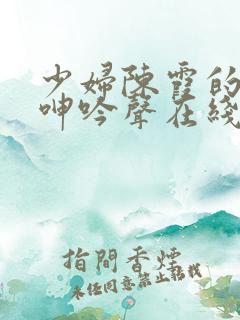 少婦陳霞的
呻吟聲在綫
指間香煙
未经同意禁止轉载